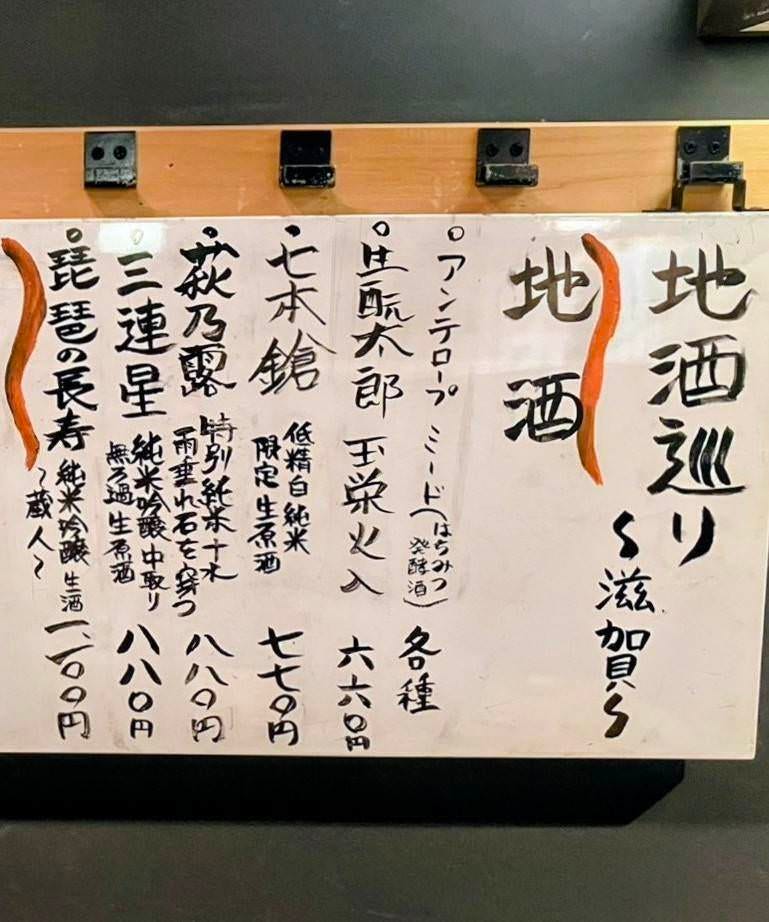 地酒巡り
〜滋賀〜
地酒
アンテロープ ミード(はちみつ
発酵酒) 各種
生酛太郎 玉栄火入 六六〇円
七本鎗 低精白純米
限定生原酒 七七〇円
萩乃露 特別純米十水
雨垂れ石を穿つ 八八〇円
三連星 純米吟醸中取り
無ろ過生原酒 八八〇円
琵琶の長寿 純米吟醸生酒
〜蔵人〜 一、一〇〇円